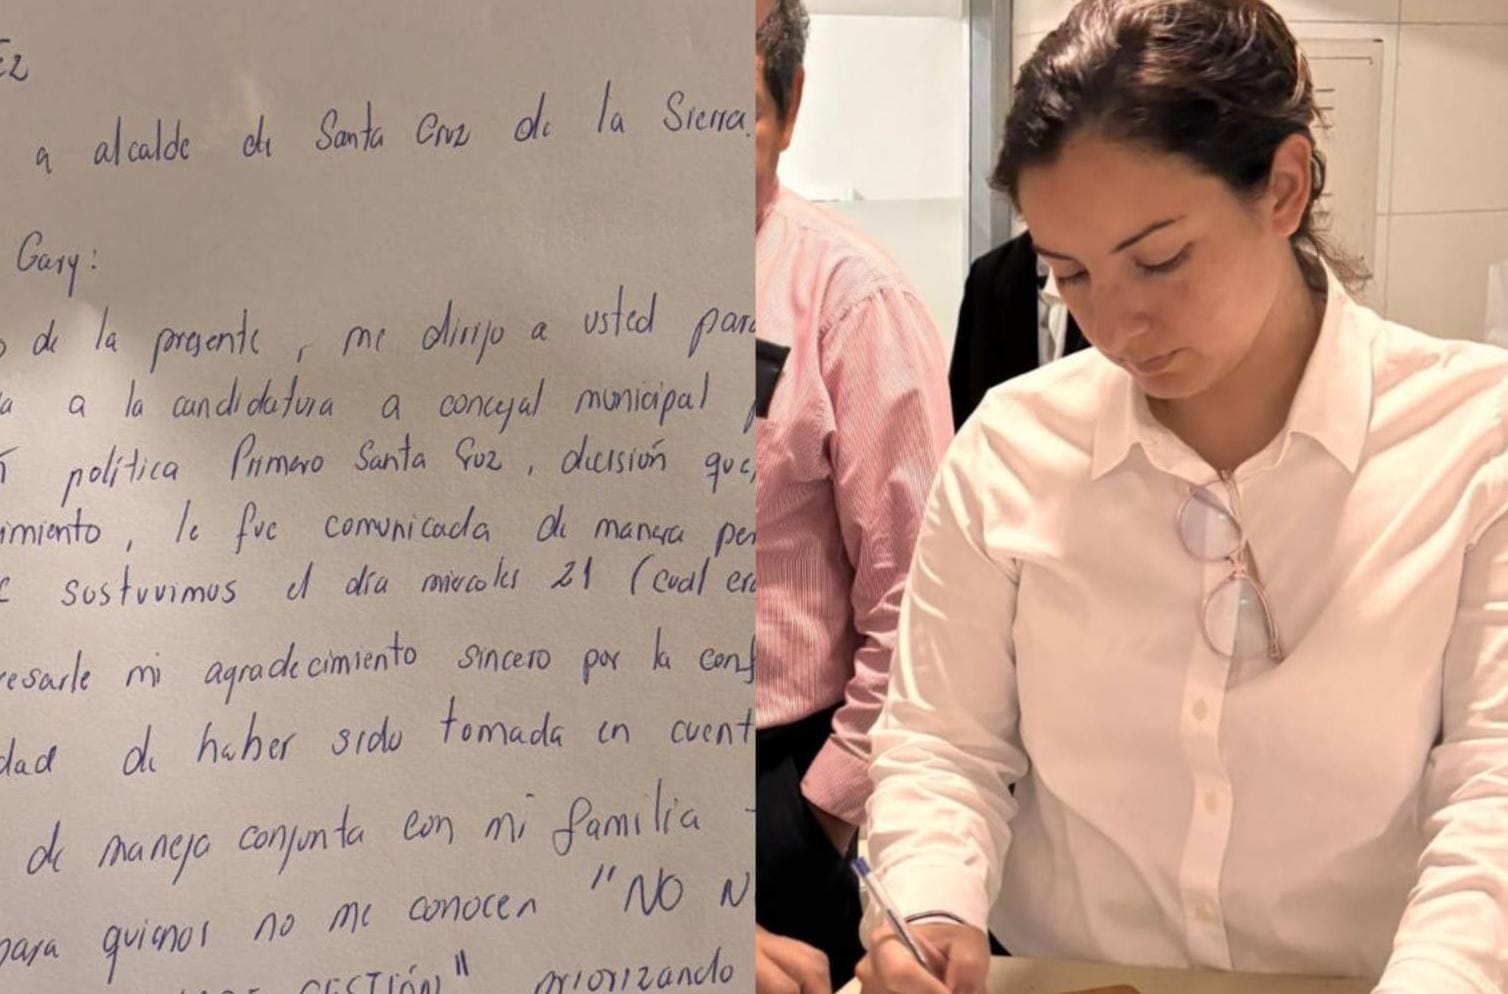 EZ
a alcalde de Santa Cruz de la Sierra.
Gary:
o de la presente, me dirijo a usted para
a a la candidatura a concejal municipal p
política Primero Santa Cruz, decisión que,
imiento, le fue comunicada de manera per
e sostuvimos el día miercoles 21 (cual era
resarle mi agradecimiento sincero por la conf
dad de haber sido tomada en cuent
de maneja conjunta con mi familia -
para quienes no me conocen "NO N
GESTIÓN" priorizando